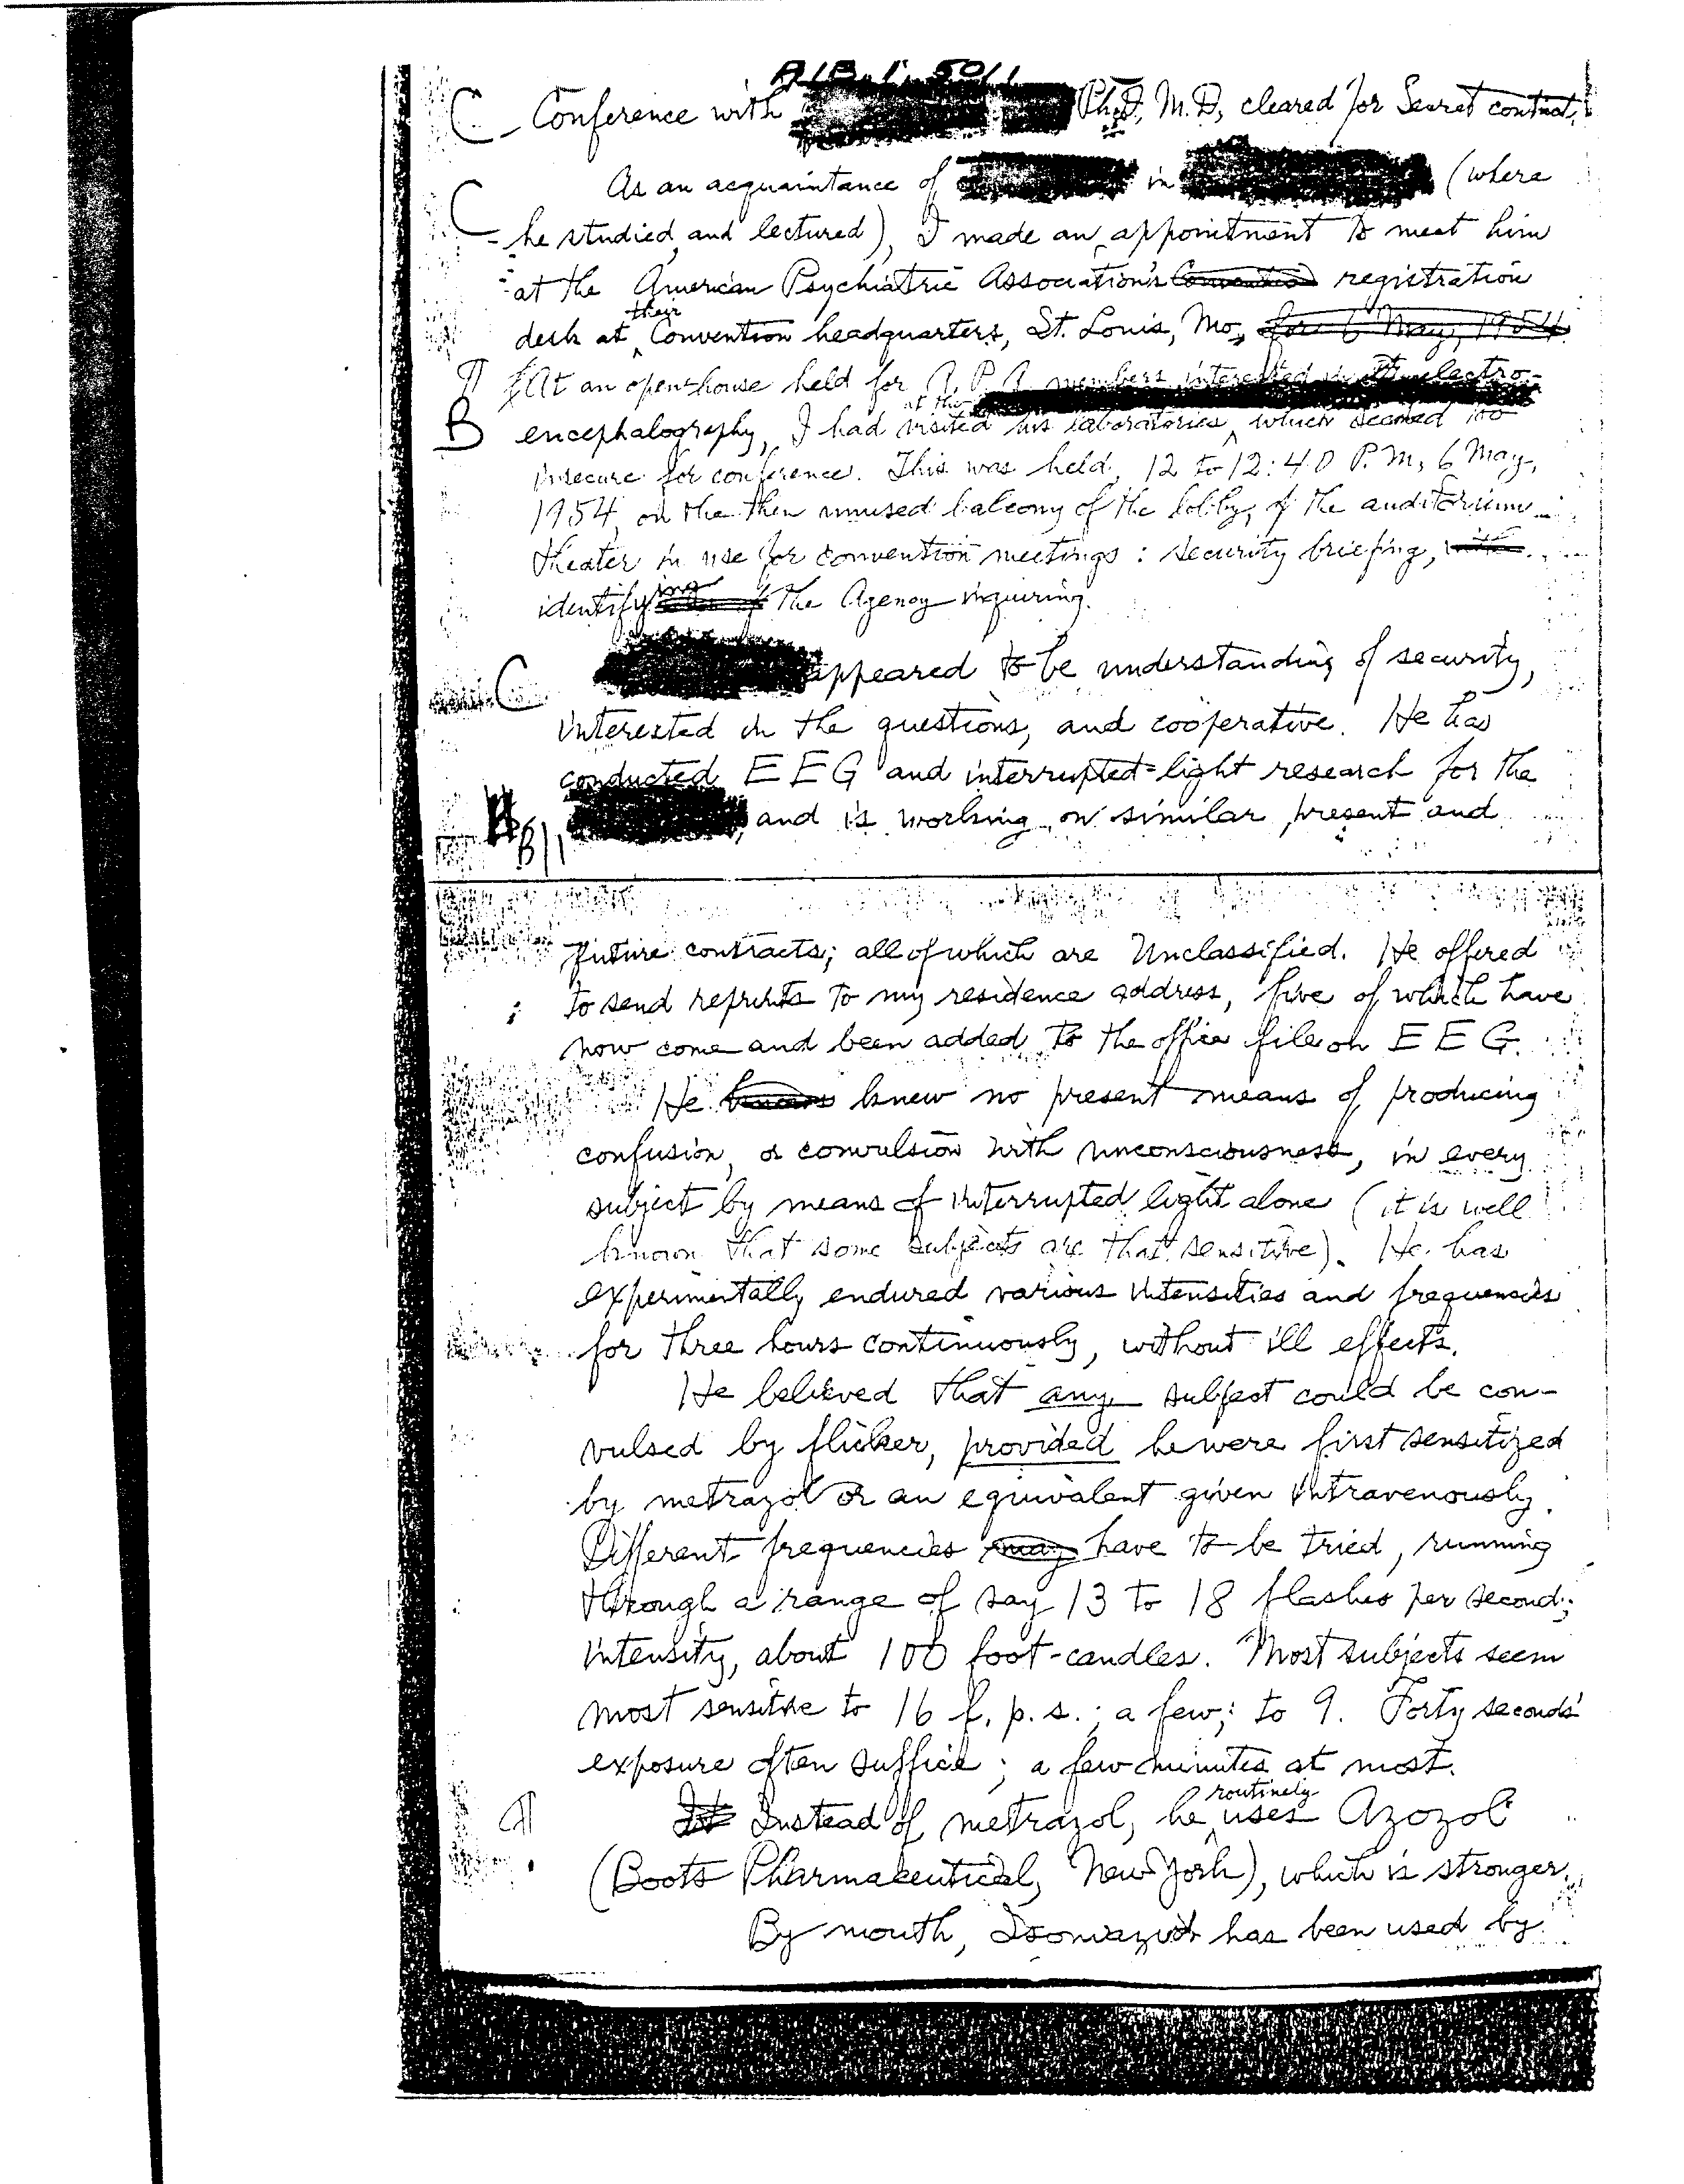 A/B, 1, 50/1
C - Conference with Ph.D, M.D, cleared for Secret contract.
C As an acquaintance of in (where
he studied and lectured), I made an appointment to meet him
at the American Psychiatric Association's Convention registration
their
desk at Convention headquarters, St. Louis, Mo., for 6 May, 1954
¶ At an open-house held for A.P.A. members interested in electro-
at the
B encephalography, I had visited his laboratories, which seemed too
insecure for conference. This was held, 12 to 12:40 P.M, 6 May,
1954, on the then unused balcony of the lobby, of the auditorium
theater in use for convention meetings: security briefing,
identifying the Agency inquiring.
C appeared to be understanding of security,
interested in the questions, and coöperative. He has
conducted EEG and interrupted-light research for the
B/1 , and is working on similar present and
future contracts; all of which are Unclassified. He offered
to send reprints to my residence address, five of which have
now come and been added to the office file on EEG.
He knows knew no present means of producing
confusion, or convulsion with unconsciousness, in every
subject by means of interrupted light alone (it is well
known that some subjects are that sensitive). He has
experimentally endured various intensities and frequencies
for three hours continuously, without ill effects.
He believed that any subject could be con-
vulsed by flicker, provided he were first sensitized
by metrazol or an equivalent given intravenously.
Different frequencies may have to be tried, running
through a range of say 13 to 18 flashes per second;
intensity, about 100 foot-candles. Most subjects seem
most sensitive to 16 f.p.s.; a few; to 9. Forty seconds'
exposure often suffice; a few minutes at most.
routinely
¶ Instead of metrazol, he uses Azozol
(Boots Pharmaceutical, New York), which is stronger.
By mouth, Isoniazid has been used by